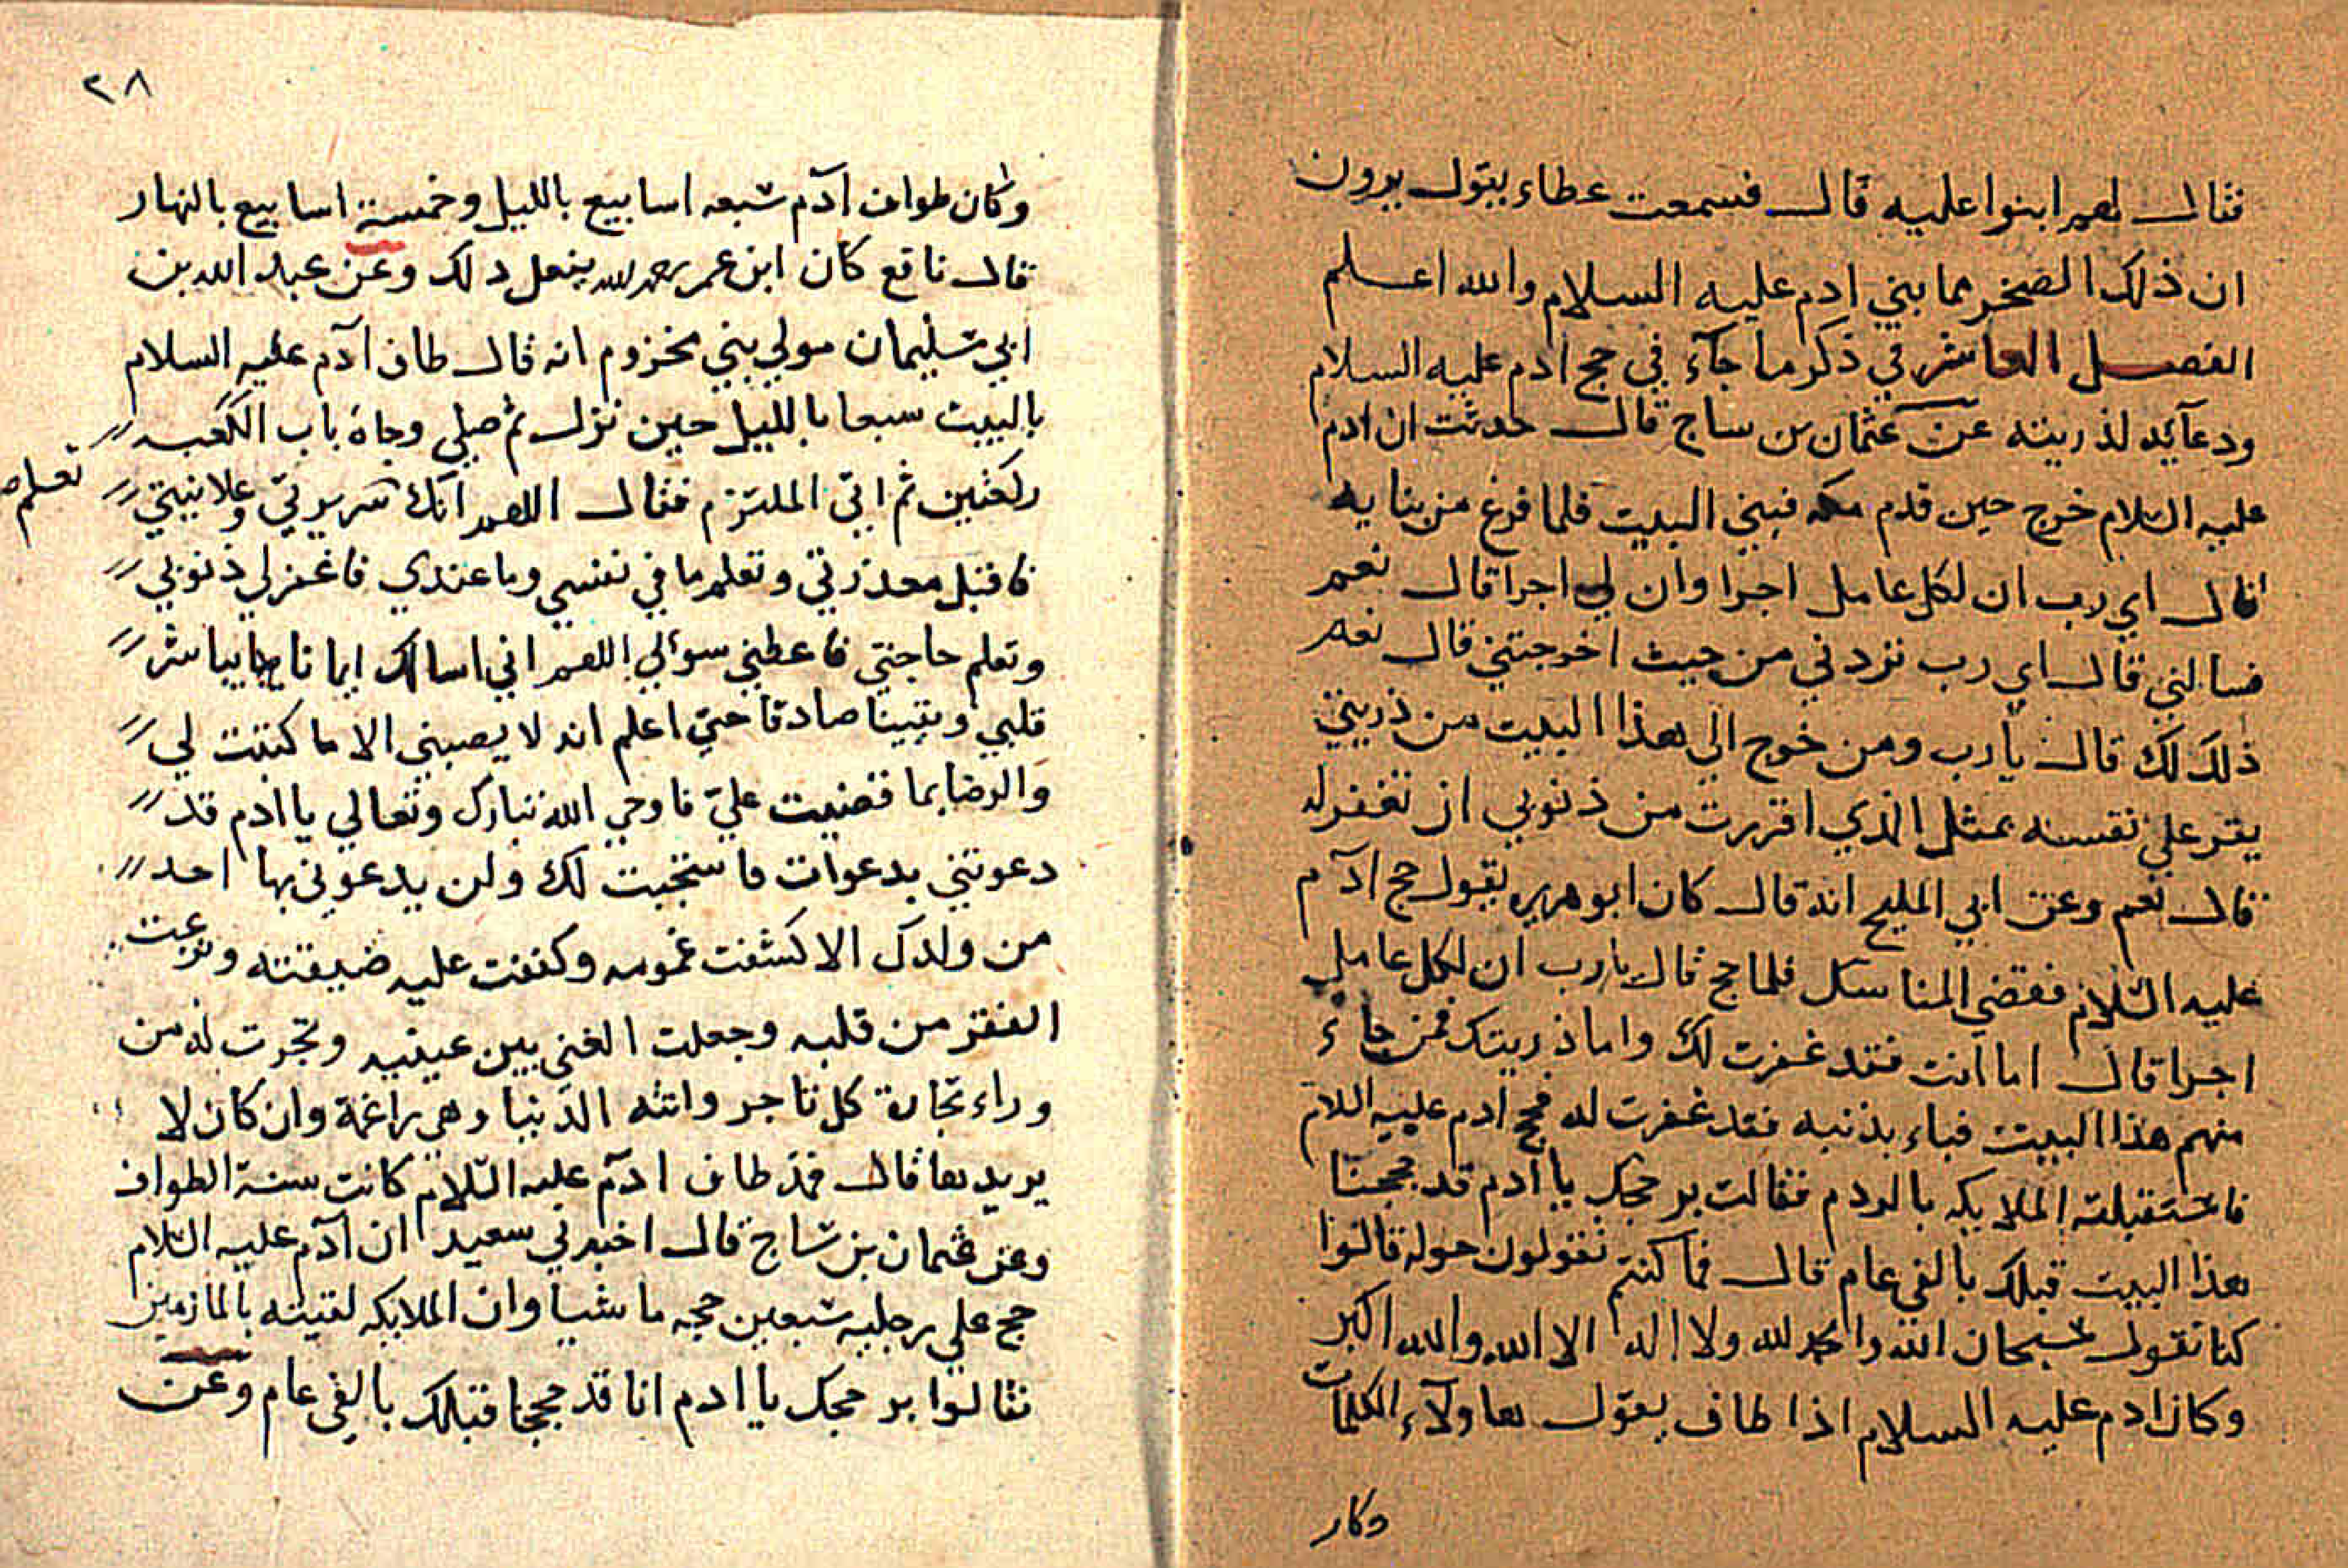 فقال لهم ابنوا عليه قال فسمعت عطاء يقول يرون
ان ذلك الصخر مما بني ادم عليه السلام والله اعلم
الفصل العاشر في ذكر ما جآء في حج ادم عليه السلام
ودعآيه لذريته عن عثمان بن ساج قال حدثت ان ادم
عليه السلام خرج حين قدم مكه فبني البيت فلما فرغ من بنايه
قال اي رب ان لكل عامل اجرا وان لي اجرا قال نعم
فسالني قال اي رب تردني من حيث اخرجتني قال نعم
ذلك لك قال يا رب ومن خرج الي هذا البيت من ذريتي
يقر علي نفسه بمثل الذي اقررت من ذنوبي ان تغفر له
قال نعم وعن ابي المليح انه قال كان ابو هريره يقول حج آدم
عليه السلام فقضي المناسك فلما حج قال يا رب ان لكل عامل
اجرا قال اما انت فقد غفرت لك واما ذريتك فمن جاء
منهم هذا البيت فباء بذنبه فقد غفرت له فحج ادم عليه السلام
فاستقبلته الملايكه بالردم فقالت بر حجك يا ادم قد حججنا
هذا البيت قبلك بالفي عام قال فما كنتم تقولون حوله قالوا
كنا نقول سبحان الله والحمد لله ولا اله الا الله والله اكبر
وكان ادم عليه السلام اذا طاف يقول هاولآء الكلمات
وكان
٢٨
وكان طواف آدم سبعه اسابيع بالليل وخمسة اسابيع بالنهار
قال نافع كان ابن عمر رحمه الله يفعل ذلك وعن عبد الله بن
ابي سليمان مولي بني مخزوم انه قال طاف آدم عليه السلام
بالبيت سبعا بالليل حين نزل ثم صلي وجاه باب الكعبه
ركعتين ثم اتي الملتزم فقال اللهم انك سريرتي وعلانيتي
تعلم صح
فاقبل معذرتي وتعلم ما في نفسي وما عندي فاغفر لي ذنوبي
وتعلم حاجتي فاعطني سوالي اللهم اني اسالك ايمانا يباشر
قلبي ويقينا صادقا حتي اعلم انه لا يصيبني الا ما كتبت لي
والرضا بما قضيت عليّ فاوحي الله تبارك وتعالي يا ادم قد
دعوتني بدعوات فاستجبت لك ولن يدعوني بها احد
من ولدك الا كشفت غمومه وكففت عليه ضيقته ونزعت
الفقر من قلبه وجعلت الغني بين عينيه وتجرت له من
وراء تجارة كل تاجر واتته الدنيا وهي راغمة وان كان لا
يريدها قال فمذ طاف ادم عليه السلام كانت سنة الطواف
وعن عثمان بن ساج قال اخبرني سعيد ان آدم عليه السلام
حج علي رجليه سبعين حجه ماشيا وان الملايكه لقيته بالمازمين
فقالوا بر حجك يا ادم انا قد حججنا قبلك بالفي عام وعن